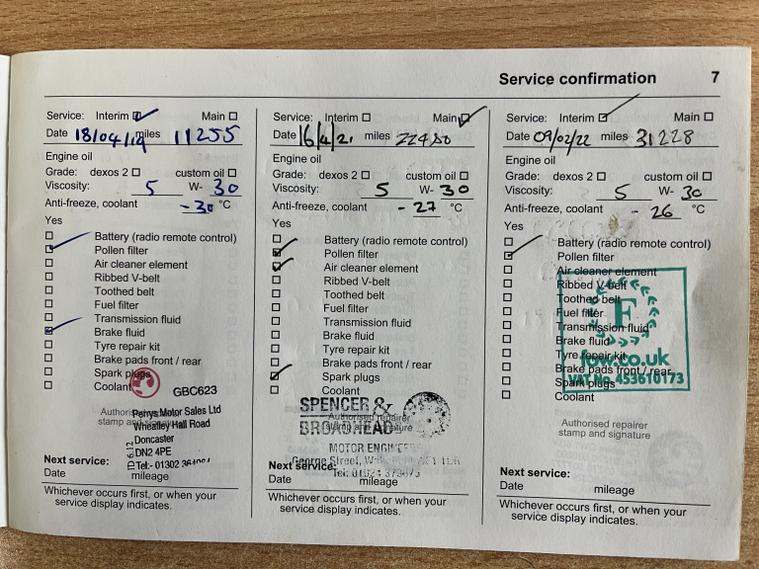 Service confirmation 7
Service: Interim Main
Date 18/04/19 miles 11255
Engine oil
Grade: dexos 2 custom oil
Viscosity: 5 W- 30
Anti-freeze, coolant -30 °C
Yes
Battery (radio remote control)
Pollen filter
Air cleaner element
Ribbed V-belt
Toothed belt
Fuel filter
Transmission fluid
Brake fluid
Tyre repair kit
Brake pads front / rear
Spark plugs
Coolant
GBC623
Authorised repairer
stamp and signature
Perrys Motor Sales Ltd
Wheatley Hall Road
Doncaster
DN2 4PE
Tel:- 01302
Next service:
Date mileage
Whichever occurs first, or when your
service display indicates.
Service: Interim Main
Date 16/4/21 miles 22450
Engine oil
Grade: dexos 2 custom oil
Viscosity: 5 W- 30
Anti-freeze, coolant - 27 °C
Yes
Battery (radio remote control)
Pollen filter
Air cleaner element
Ribbed V-belt
Toothed belt
Fuel filter
Transmission fluid
Brake fluid
Tyre repair kit
Brake pads front / rear
Spark plugs
Coolant
SPENCER &
Authorised repairer
BROADHEAD
stamp and signature
MOTOR ENGINEERS
George Street,
Tel: 01924
Next service:
Date mileage
Whichever occurs first, or when your
service display indicates.
Service: Interim Main
Date 09/02/22 miles 31228
Engine oil
Grade: dexos 2 custom oil
Viscosity: 5 W- 30
Anti-freeze, coolant - 26 °C
Yes
Battery (radio remote control)
Pollen filter
Air cleaner element
Ribbed V-belt
Toothed belt
Fuel filter
F
Transmission fluid
Brake fluid
Tyre repair kit
fow.co.uk
Brake pads front / rear
Spark plugs
VAT No 453610173
Coolant
Authorised repairer
stamp and signature
Next service:
Date mileage
Whichever occurs first, or when your
service display indicates.